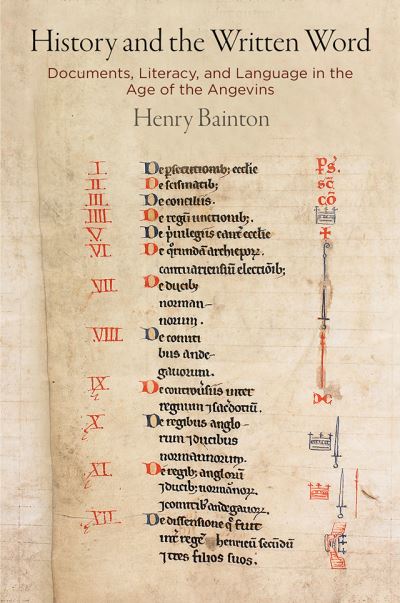 History and the Written Word
Documents, Literacy, and Language in the
Age of the Angevins
Henry Bainton
I. De psecutionib; ecclie ps.
II. De scismatib; sc̄
III. De conciliis. cō
IIII. De regū unctionib;.
V. De p̍uilegiis cant᷒ ecclie
VI. De q̍rundā archiepoꝝ.
cantuariensiū electiōib;
VII. De ducib;
norman-
norum.
VIII. De comiti
bus ande-
gauorum.
IX. De controuʼsiis inter
regnum ⁊ sacʼdotiū.
X. De regibus anglo-
rum ⁊ ducibus
normannorum.
XI. De regib; anglorū
⁊ ducib; normānoꝝ.
⁊ comitib' andegauoꝝ.
XII. De dissensione q̄ fuit
int᷒ regē henricū secūdū
⁊ tres filios suos.